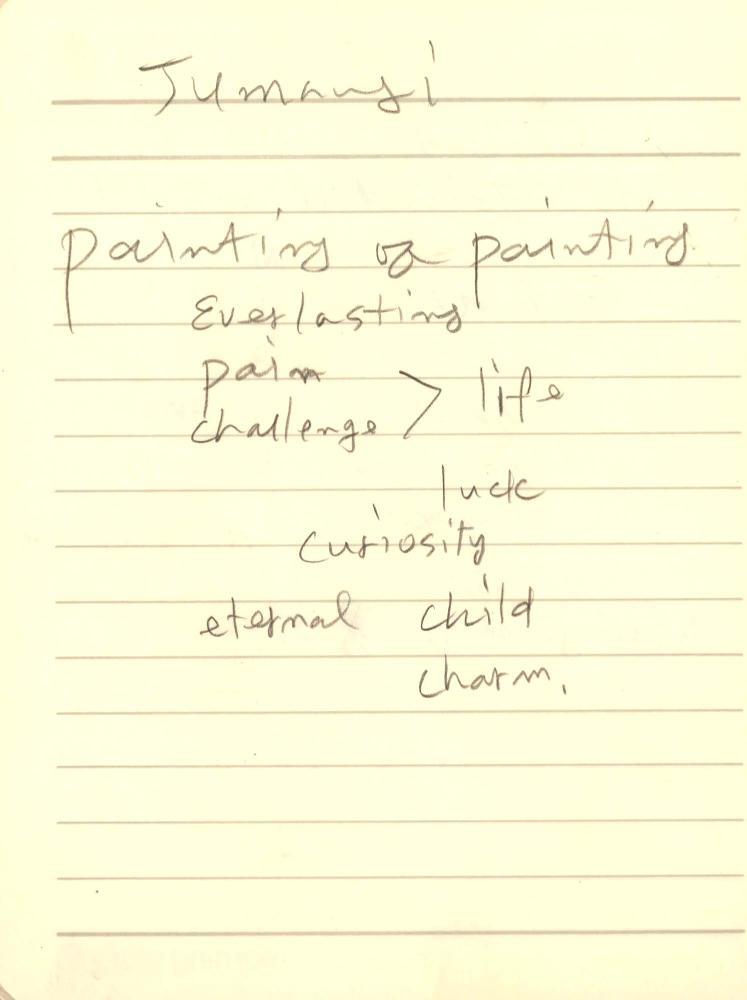 Jumanji
painting of painting
Everlasting
pain
challenge > life
luck
curiosity
eternal child
charm.